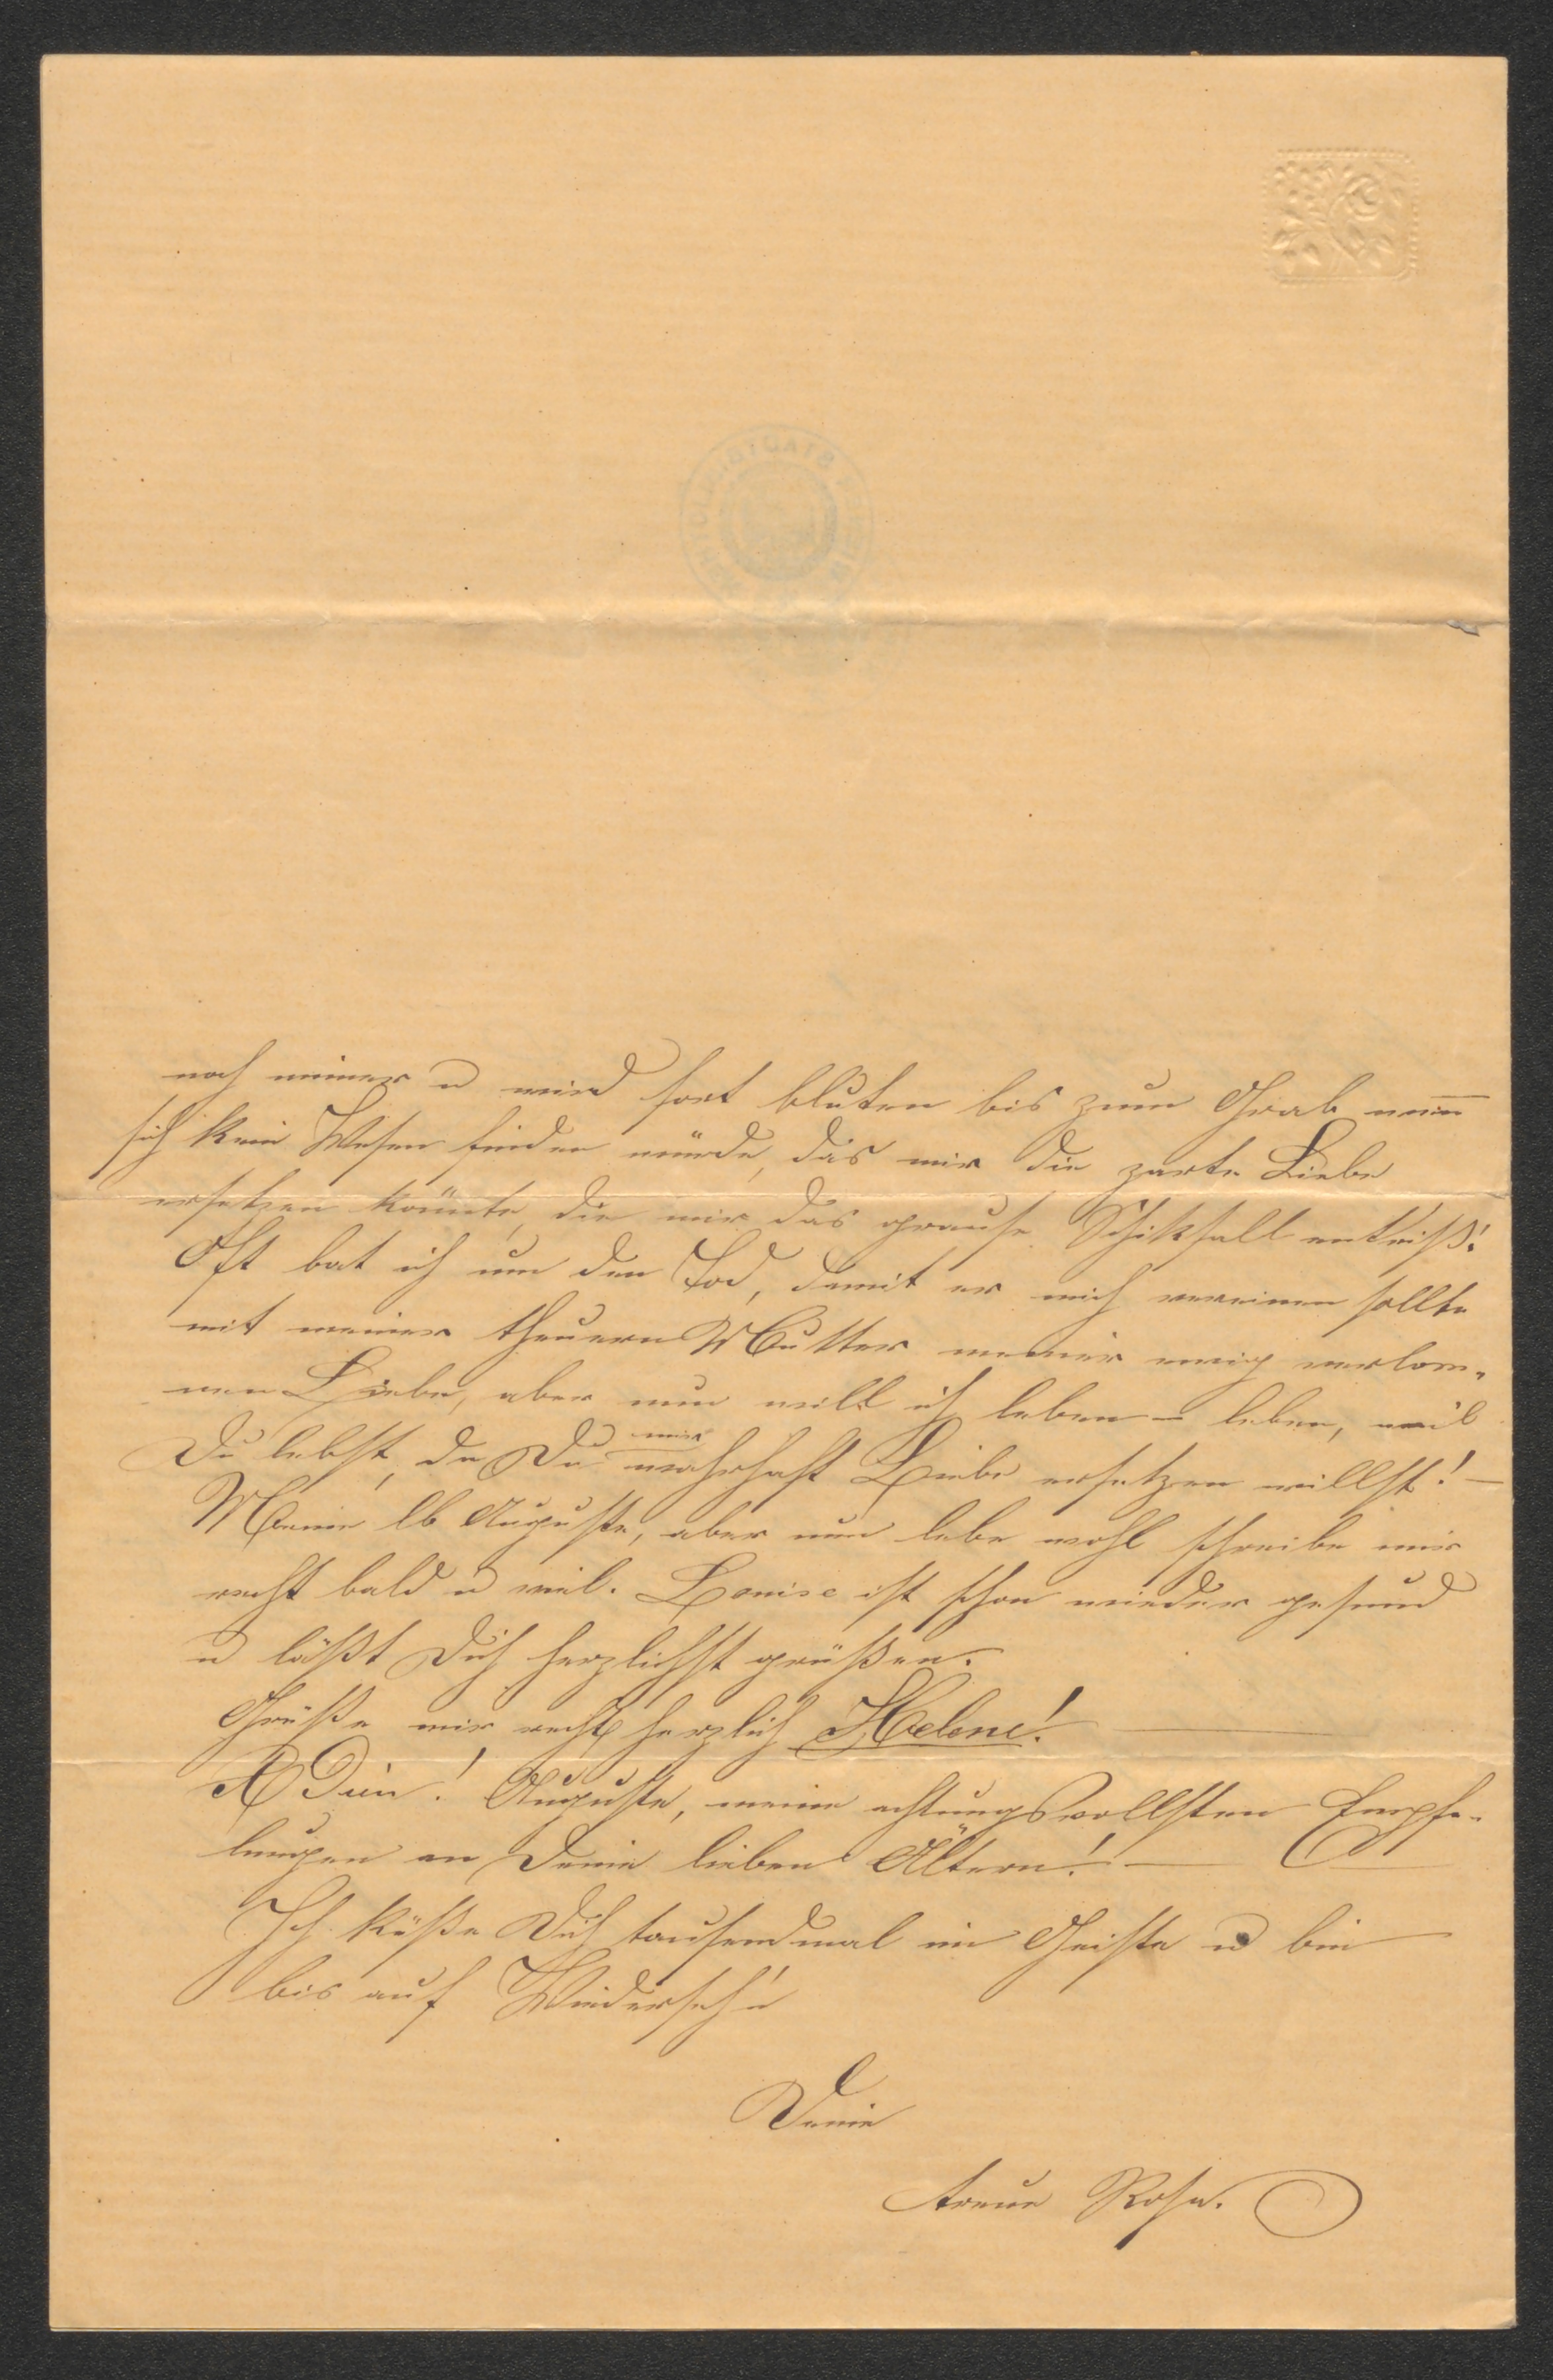 noch immer u wird fort bluten bis zum Grab wenn
sich kein Wesen finden würde, das mir die zarte Liebe
ersetzen könnte, die mir das grause Schiksall entriß!
Oft bat ich um den Tod, damit er mich vereinen sollte
mit meiner theuern Mutter meiner ewig verlorn,
nen Liebe, aber nun will ich leben – leben, weil
Du lebst, da Du mir wahrhaft Liebe ersetzen willst! –
Meine lb Auguste, aber nun lebe wohl schreibe mir
recht bald u viel. Louise ist schon wieder gesund
u läßt Dich herzlichst grüßen.
Grüße mir recht herzlich Helene!
A Dieu! Auguste, meine achtungsvollsten Empfe-
lungen an Deine lieben Ältern! –
Ich küße Dich tausendmal im Geiste u bin
bis auf Wiederseh'n
Deine
treue Rosa.